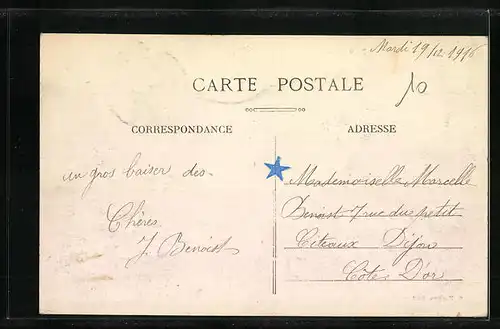 Mardi 19/12 1916
10
CARTE POSTALE
CORRESPONDANCE
ADRESSE
un gros baiser des
Chères
J. Benoist
Mademoiselle Marcelle
Benoist 7 rue du petit
Citeaux Dijon
Côte D'or